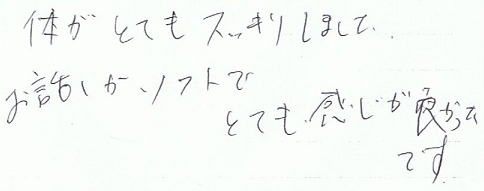 体がとてもスッキリしまして、
お話しがソフトで
とても感じが良かった
です